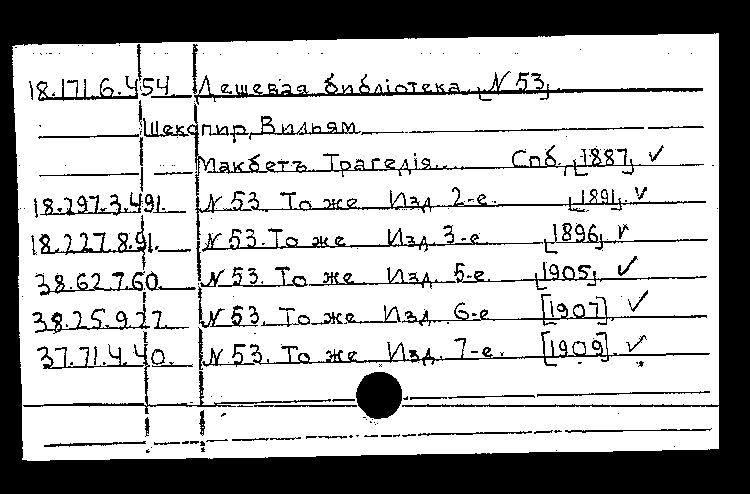 18.171.6.454. Дешевая библіотека. [N 53].
Шекспир, Вильям
Макбетъ. Трагедія.... Спб., [1887] ✓
18.297.3.491. N 53. То же Изд. 2-е. [1891]. ✓
18.227.8.91. N 53. То же Изд. 3-е [1896] ✓
38.62.7.60. N 53. То же Изд. 5-е. [1905]. ✓
38.25.9.27. N 53. То же Изд. 6-е [1907]. ✓
37.71.4.40. N 53. То же Изд. 7-е. [1909]. ✓